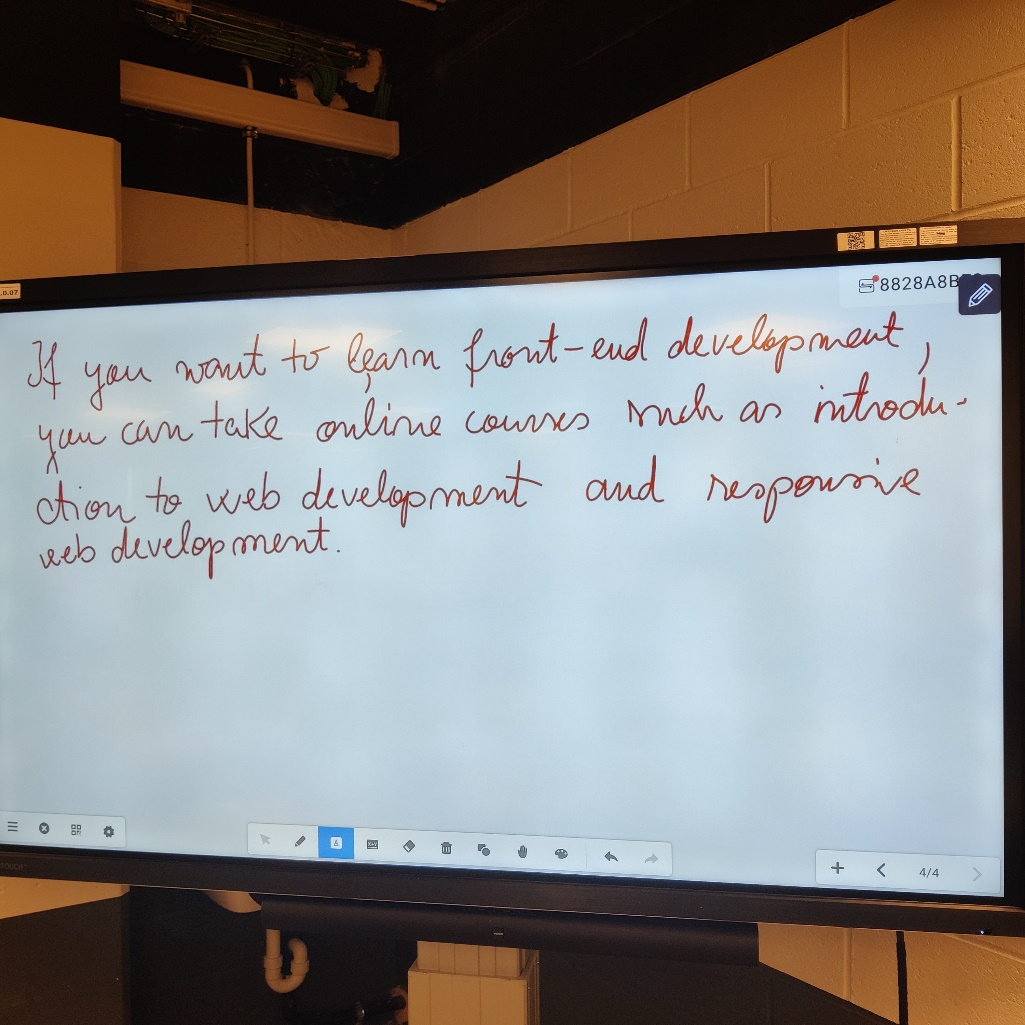 .0.07
8828A8B
If you want to learn front-end development,
you can take online courses such as introdu-
ction to web development and responsive
web development.
4/4